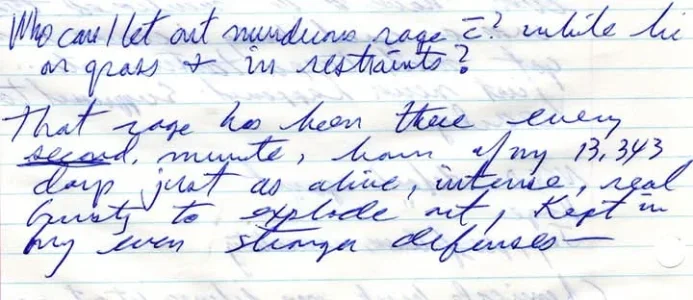 Who can I let out murderous rage c̄? while lie
on grass & in restraints?
That rage has been there every
second, minute, hour of my 13,343
days just as alive, intense, real
bursting to explode out, Kept in
by even stronger defenses—